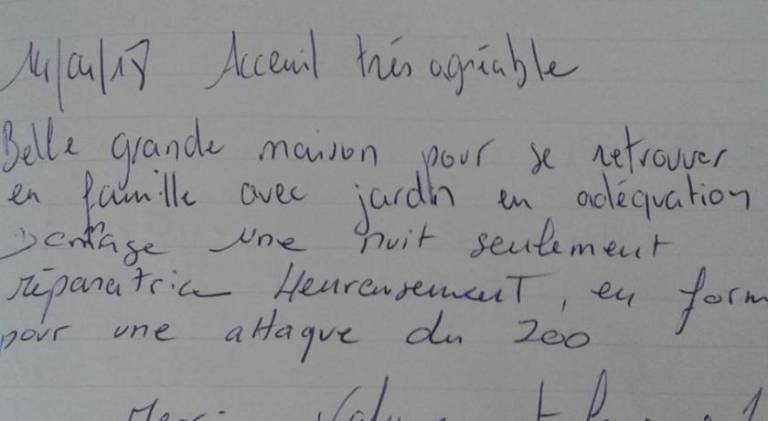 14/04/18 Acceuil trés agréable
Belle grande maison pour se retrouver
en famille avec jardin en adéquation
une nuit seulement
réparatrice Heureusement, en form
pour une attaque du 200
Merci